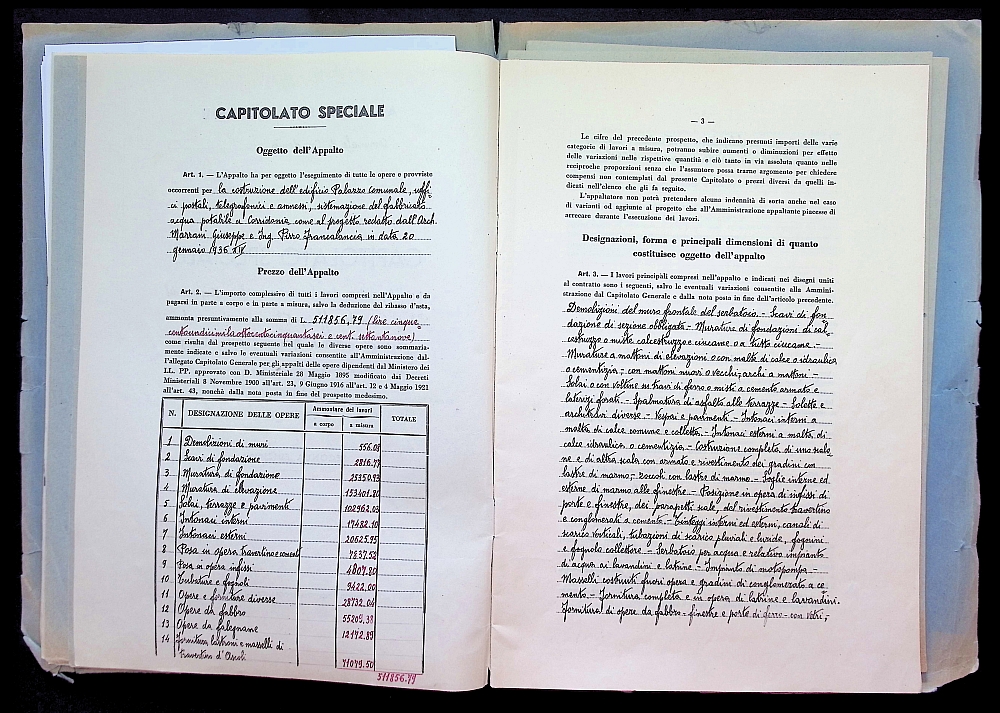 CAPITOLATO SPECIALE
Oggetto dell'Appalto
Art. 1. — L'Appalto ha per oggetto l'eseguimento di tutte le opere o provviste
occorrenti per la costruzione dell'edificio Palazzo comunale, uffi
ci postali, telegrafonici e annessi, sistemazione del fabbricato
acqua potabile a Corridonia come al progetto redatto dall'Arch.
Marrani Giuseppe e Ing. Pirro Francalancia in data 20
gennaio 1936 XIV
Prezzo dell'Appalto
Art. 2. — L'importo complessivo di tutti i lavori compresi nell'Appalto e da
pagarsi in parte a corpo e in parte a misura, salvo la deduzione del ribasso d'asta,
ammonta presuntivamente alla somma di L. 511856,79 (lire cinque
centoundicimilaottocentocinquantasei e cent. settantanove)
come risulta dal prospetto seguente nel quale le diverse opere sono sommaria-
mente indicate e salvo le eventuali variazioni consentite all'Amministrazione dal-
l'allegato Capitolato Generale per gli appalti delle opere dipendenti dal Ministero dei
LL. PP. approvato con D. Ministeriale 28 Maggio 1895 modificato dai Decreti
Ministeriali 8 Novembre 1900 all'art. 23, 9 Giugno 1916 all'art. 12 e 4 Maggio 1921
all'art. 43, nonchè dalla nota posta in fine del prospetto medesimo.
N. DESIGNAZIONE DELLE OPERE Ammontare dei lavori TOTALE
a corpo a misura
1 Demolizioni di muri 556.08
2 Scavi di fondazione 2816.77
3 Muratura di fondazione 25350.93
4 Muratura di elevazione 153401.80
5 Solai, terrazze e pavimenti 102962.03
6 Intonaci interni 17482.10
7 Intonaci esterni 20625.95
8 Posa in opera travertino e cementi 7837.52
9 Posa in opera infissi 4807.80
10 Tubature e fognoli 9422.00
11 Opere e forniture diverse 28732.04
12 Opere da fabbro 55209.38
13 Opere da falegname 12172.89
14 Fornitura lastroni e masselli di
travertino d'Ascoli 71079.50
511856.79
— 3 —
Le cifre del precedente prospetto, che indicano presunti importi delle varie
categorie di lavori a misura, potranno subire aumenti o diminuzioni per effetto
delle variazioni nelle rispettive quantità e ciò tanto in via assoluta quanto nelle
reciproche proporzioni senza che l'assuntore possa trarne argomento per chiedere
compensi non contemplati dal presente Capitolato o prezzi diversi da quelli in-
dicati nell'elenco che gli fa seguito.
L'appaltatore non potrà pretendere alcuna indennità di sorta anche nel caso
di varianti od aggiunte al progetto che all'Amministrazione appaltante piacesse di
arrecare durante l'esecuzione dei lavori.
Designazioni, forma e principali dimensioni di quanto
costituisce oggetto dell'appalto
Art. 3. — I lavori principali compresi nell'appalto e indicati nei disegni uniti
al contratto sono i seguenti, salvo le eventuali variazioni consentite alla Ammini-
strazione dal Capitolato Generale e dalla nota posta in fine dell'articolo precedente.
Demolizioni del muro frontale del serbatoio. - Scavi di fon
dazione di sezione obbligata - Murature di fondazioni di cal
cestruzzo o miste calcestruzzo e ciucame o a tutto ciucame. -
Murature a mattoni di elevazioni o con malta di calce o idraulica
o cementizia; con mattoni nuovi o vecchi; archi a mattoni -
Solai o con voltine su travi di ferro o misti a cemento armato e
laterizi forati. - Spalmatura di asfalto alle terrazze - Solette e
architravi diverse. - Vespai e pavimenti. - Intonaci interni a
malta di calce comune e colletta. - Intonaci esterni a malta di
calce idraulica o cementizia. - Costruzione completa di uno scalo
ne e di altra scala con armato e rivestimento dei gradini con
lastre di marmo; zoccoli con lastre di marmo. - Soglie interne ed
esterne di marmo alle finestre. - Posizione in opera di infissi di
porte e finestre, dei parapetti scale, del rivestimento travertino
e conglomerati a cemento. - Tinteggi interni ed esterni, canali di
scarico verticali, tubazioni di scarico pluviali e luride, fognini
e fognolo collettore. - Serbatoio per acqua e relativo impianto
di acqua ai lavandini e latrine. - Impianto di motopompa. -
Masselli costruiti fuori opera e gradini di conglomerato a ce
mento. - Fornitura completa e in opera di latrine e lavandini.
Fornitura di opere da fabbro - finestre e porte di ferro - con vetri;